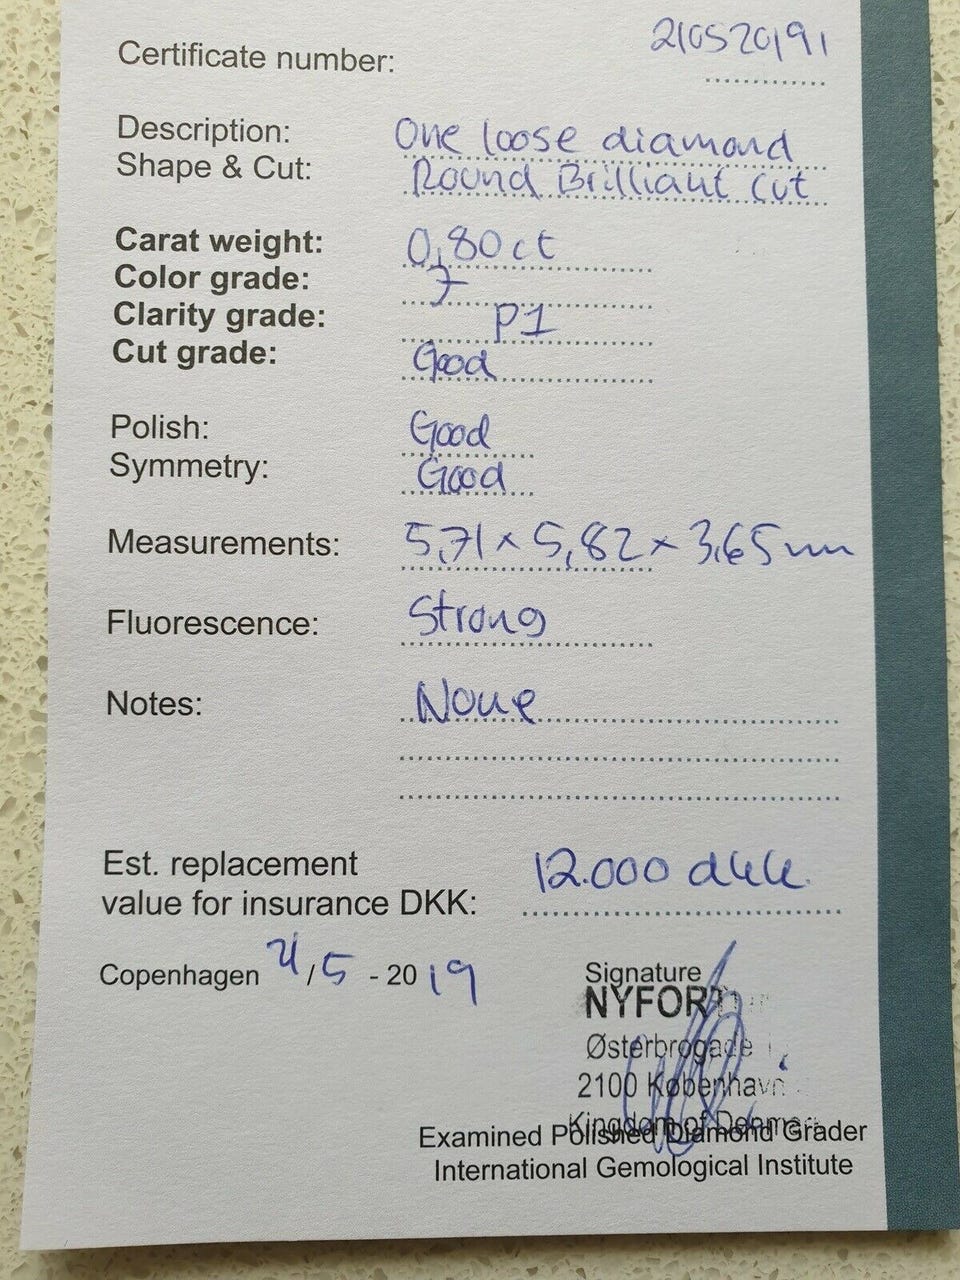 Certificate number: 210520191
Description: One loose diamond
Shape & Cut: Round Brilliant Cut
Carat weight: 0,80 ct
Color grade:
Clarity grade: P1
Cut grade: Good
Polish: Good
Symmetry: Good
Measurements: 5,71 x 5,82 x 3,65 mm
Fluorescence: Strong
Notes: None
Est. replacement
value for insurance DKK: 12.000 dkk.
Copenhagen 21/5 - 2019
Signature
Østerbrogade
2100 København
Kingdom of Denmark
Examined Polished Diamond Grader
International Gemological Institute